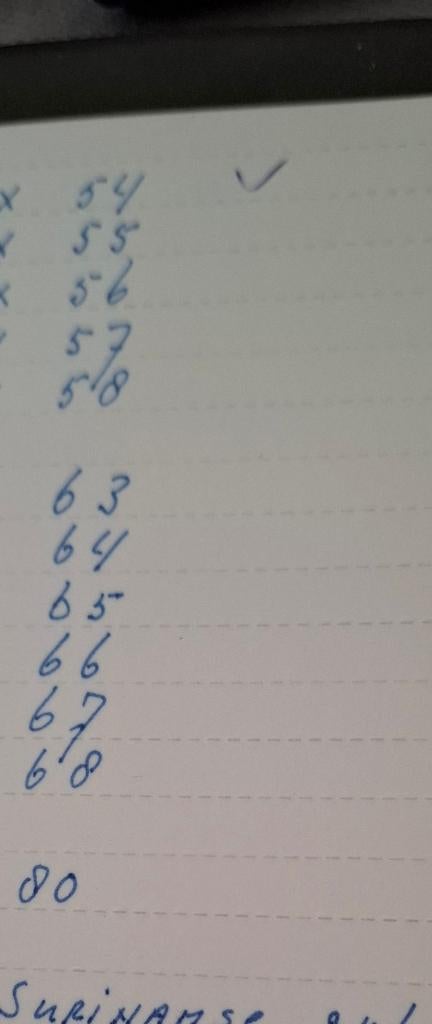 x 54 ✓
x 55
x 56
57
58
63
64
65
66
67
68
80
SURINAMSE